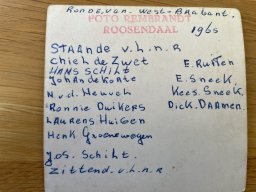 Ronde.van.West-Brabant.
FOTO REMBRANDT
ROOSENDAAL 1965
STAAnde v.l.n.R
Chiel de Zwet E. Rutten
HANS SCHILT E. Sneek,
Joh an de Korte Kees. Sneek
N.v.d. Heuvel Dick. DAAMEN.
Ronnie Duikers
Laurens Huigen
Henk Groenewegen
Jos. Schilt.
Zittend. v.l.n.R